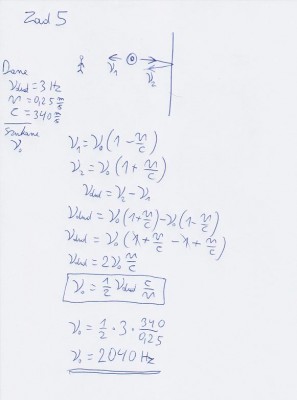 Zad 5
ν₁ ν₂
Dane
ν_dud = 3 Hz
v = 0,25 m/s
c = 340 m/s
szukane
ν₀
ν₁ = ν₀ (1 - v/c)
ν₂ = ν₀ (1 + v/c)
ν_dud = ν₂ - ν₁
ν_dud = ν₀ (1 + v/c) - ν₀ (1 - v/c)
ν_dud = ν₀ (1 + v/c - 1 + v/c)
ν_dud = 2ν₀ v/c
ν₀ = 1/2 ν_dud c/v
ν₀ = 1/2 · 3 · 340/0,25
ν₀ = 2040 Hz